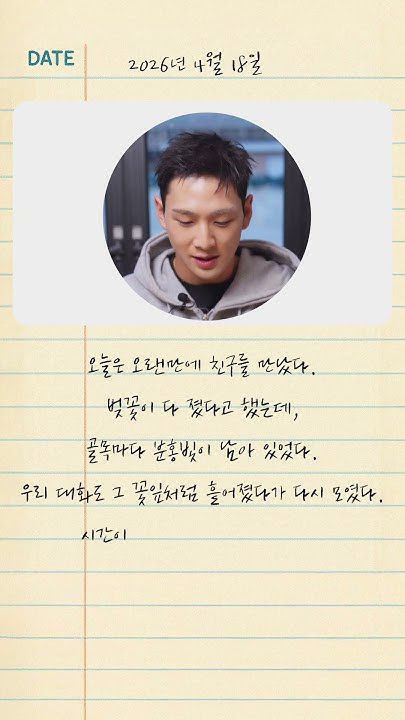 DATE 2026년 4월 18일
오늘은 오랜만에 친구를 만났다.
벚꽃이 다 졌다고 했는데,
골목마다 분홍빛이 남아 있었다.
우리 대화도 그 꽃잎처럼 흩어졌다가 다시 모였다.
시간이